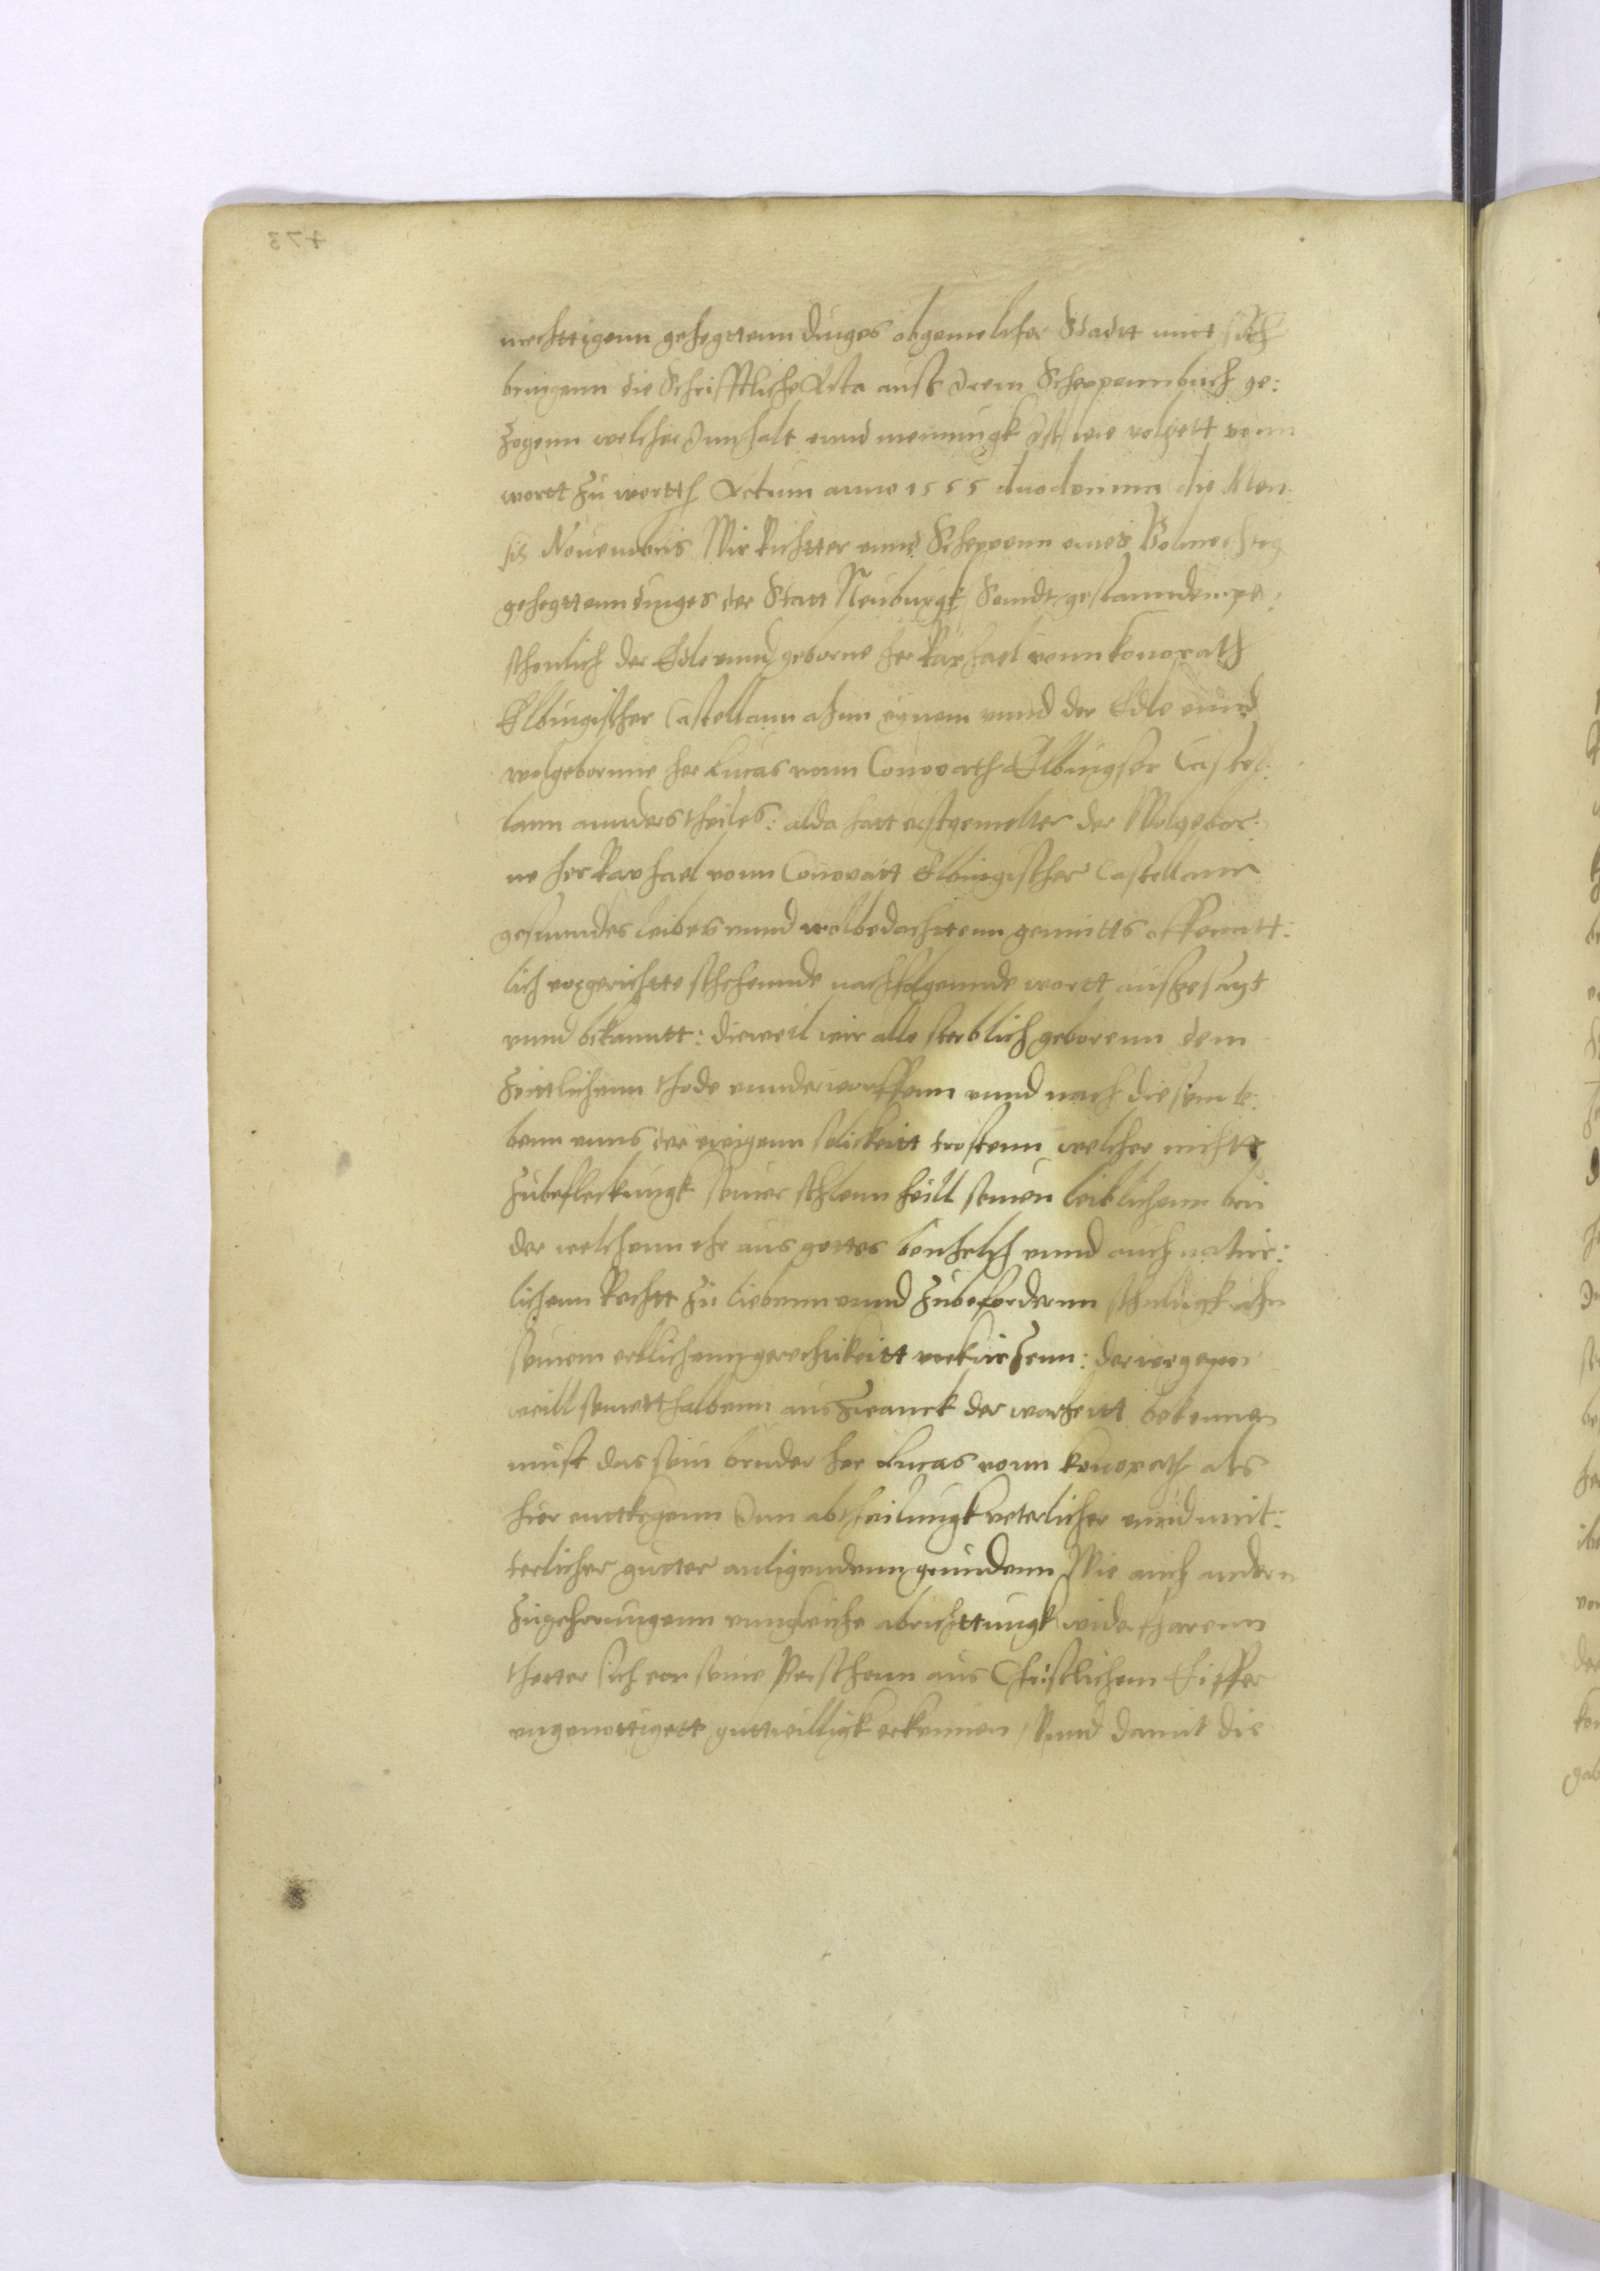 mechttigenn gehegttenn dinges obgemelcher Stadtt mitt sich
bringenn die Schrifftliche Acta auß Irem Scheppennbuch ge:
zogenn welcher Innhalt vnnd meinungk Ist wie volgett vonn
wortt zu wortth Actum anno 1555 duodecima die Men
sis Nouembris Wir Richtter vnnd Scheppenn eines Volmechtig
gehegttenn dinges der Statt Neuburgk Seindt gestanndenn pe:
schenlich der Edle vnnd geborne her Raphael vonn konopath
Elbingischer Castellann ahnn eynem vnnd der Edle vnnd
wolgebornne her Lucas vonn Conopath Elbingser Castel:
lann annders theiles: alda hatt erstgemelter der Wolgebor:
ne her Raphael vonn Conopatt Elbingischer Castellann
gesunndes leibes vnnd wolbedachttenn gemutts offenntt:
lich vorgerichtte stehennde nachfolgennde wortt ausgesagt
vnnd bekanntt: dieweil wir alle sterblich geborenn dem
Zeittlichenn thode vnnderworffenn vnnd nach diesem le:
benn vnns der ewigenn selickeitt trostenn welcher nichtt
zubefleckungk seiner sehlenn heill seinen leiblichenn bru
der welchenn ehr aus gottes benhelch vnnd auch natur:
lichenn Rechtt zu liebenn vnnd zubefordernn schuldigk ahn
seinem erblichenn gerechtikeitt vorkurtzenn: derwegenn
weill seinetthalbenn aus zwanck der warheitt bekennen
muß das sein bruder her Lucas vonn konopath als
hier enntkegenn Inn abtheilungk veterlicher vnnd mut:
terlicher gutter anligendenn grundenn Wie auch andern
zugehorungenn vnngleiche abrichttungk widerfharenn
thetter sich vor seine Perschonn aus Christlichem Eiffer
ungenottigett guttwilligk erkennen, Vnnd damit die